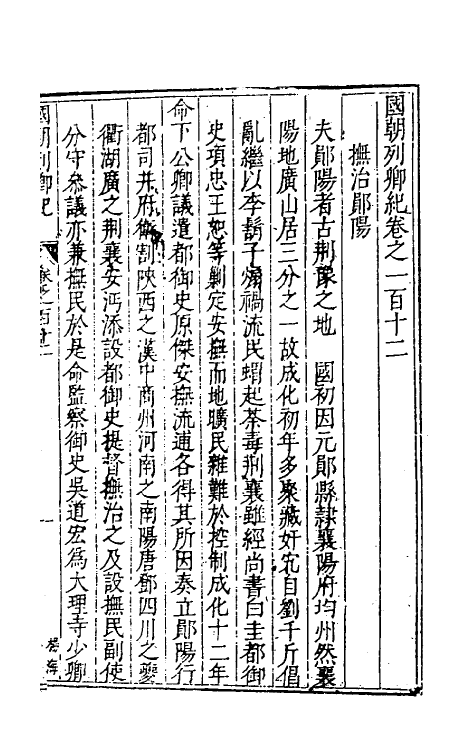 國朝列卿紀卷之一百十二
撫治鄖陽
夫鄖陽者古荆豫之地　國初因元鄖縣隷襄陽府均州然襄
陽地廣山居三分之一故成化初年多聚藏奸宄自劉千斤倡
亂繼以李鬍子煽禍流民蝟起荼毒荆襄雖經尚書白圭都御
史項忠王恕等剿定安撫而地曠民雜難於控制成化十二年
命下公卿議遣都御史原傑安撫流逋各得其所因奏立鄖陽行
都司并府衛割陝西之漢中商州河南之南陽唐鄧四川之夔
衢湖廣之荆襄安沔添設都御史提督撫治之及設撫民副使
分守叅議亦兼撫民於是命監察御史吳道宏爲大理寺少卿
國朝列卿紀
卷之一百十二
一